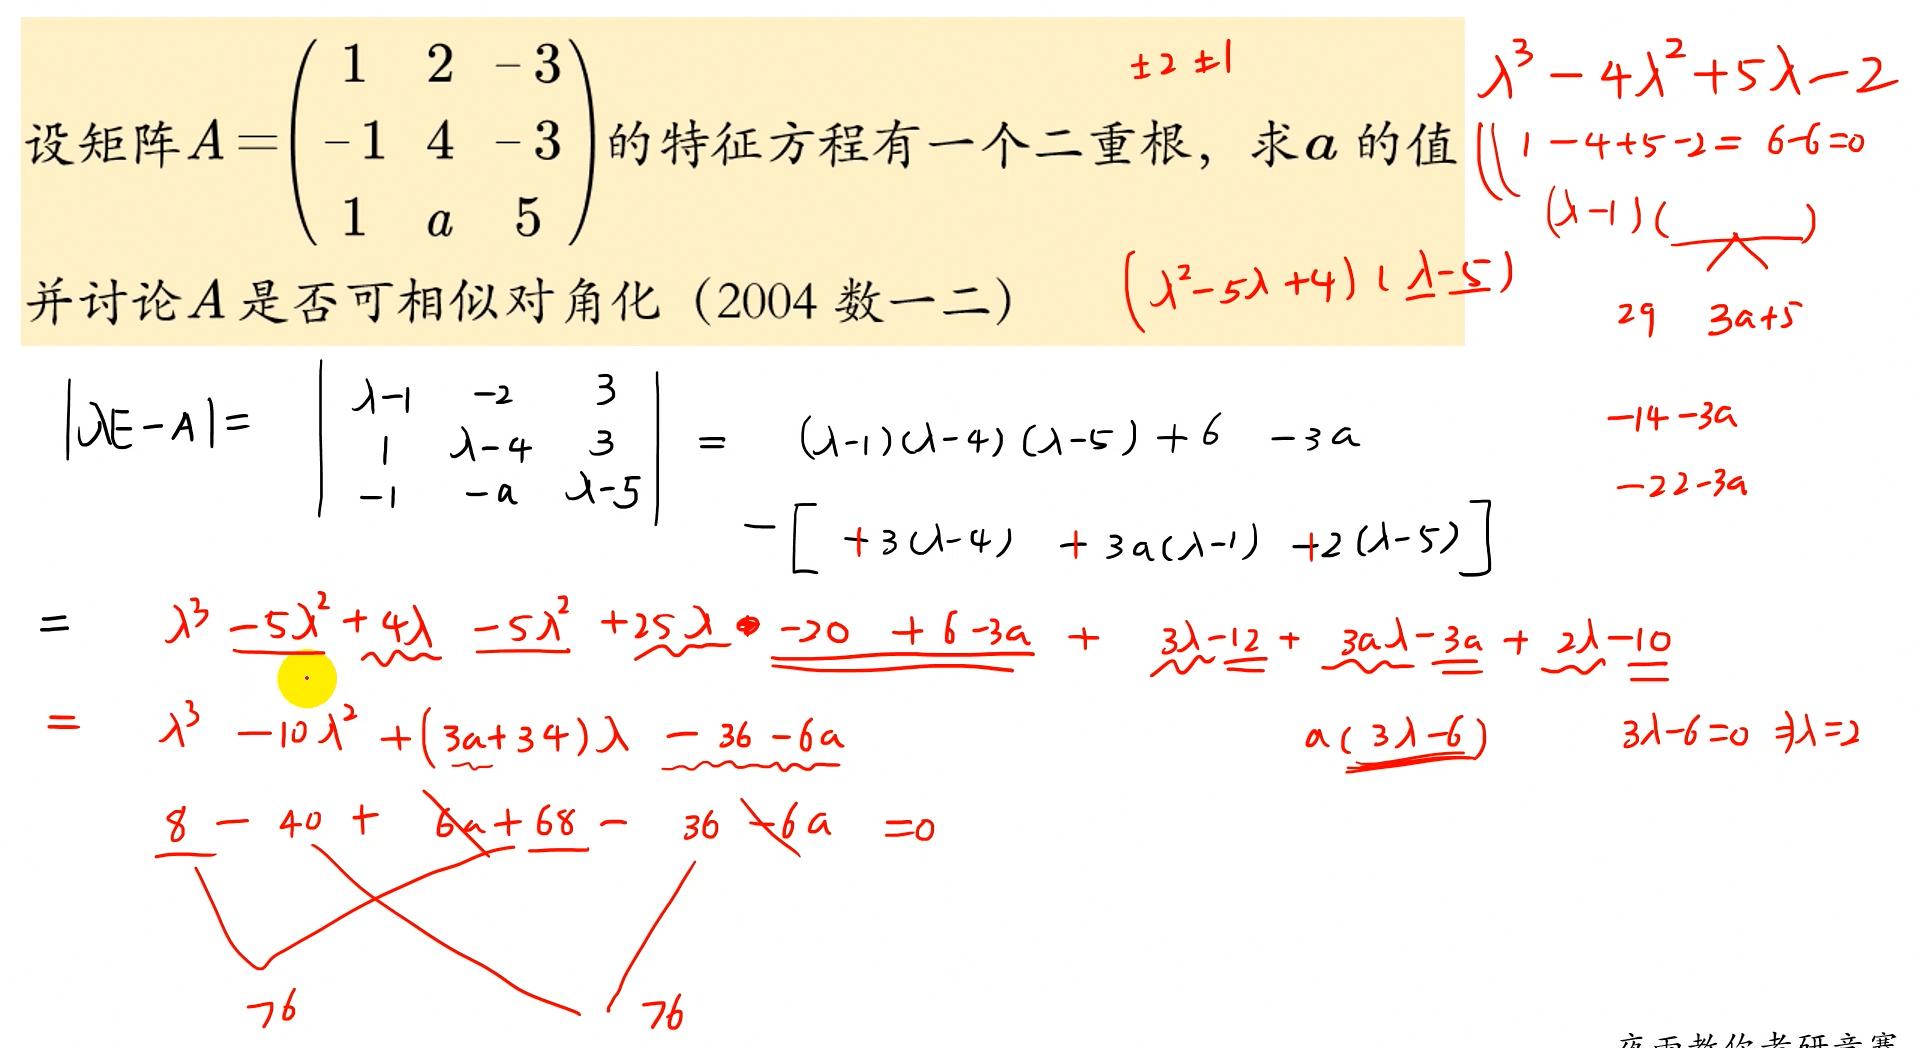 设矩阵 A = ( 1 2 -3
-1 4 -3
1 a 5 ) 的特征方程有一个二重根，求 a 的值
并讨论 A 是否可相似对角化（2004 数一二）
±2 ±1
λ³ - 4λ² + 5λ - 2
1 - 4 + 5 - 2 = 6-6 = 0
(λ-1)( )
(λ² - 5λ + 4)(λ-5)
29 3a+5
-14 -3a
-22-3a
|λE - A| = | λ-1 -2 3
1 λ-4 3
-1 -a λ-5 | = (λ-1)(λ-4)(λ-5) + 6 - 3a
- [ +3(λ-4) + 3a(λ-1) +2(λ-5) ]
= λ³ - 5λ² + 4λ - 5λ² + 25λ - 20 + 6 - 3a + 3λ - 12 + 3aλ - 3a + 2λ - 10
= λ³ - 10λ² + (3a+34)λ - 36 - 6a
a(3λ-6) 3λ-6=0 ⇒λ=2
8 - 40 + 6a + 68 - 36 - 6a = 0
76 76
夜雨教你考研竞赛